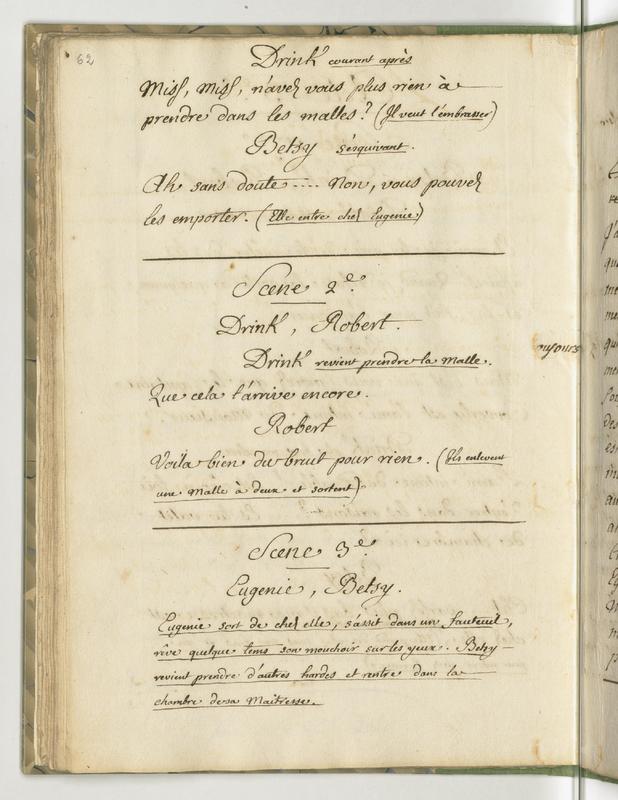 62
Drink courant après
Miss, Miss, n'avez vous plus rien à
prendre dans les malles? (Il veut l'embrasser)
Betsy s'esquivant.
Ah sans doute .... Non, vous pouvez
les emporter. (Elle entre chez Eugenie)
Scene 2e.
Drink, Robert.
Drink revient prendre la malle.
Que cela t'arrive encore.
Robert
Voila bien du bruit pour rien. (Ils enlevent
une malle à deux et sortent)
Scene 3e.
Eugenie, Betsy.
Eugenie sort de chez elle, s'assit dans un fauteuil,
rêve quelque tems son mouchoir sur les yeux. Betsy
revient prendre d'autres hardes et rentre dans la
chambre de sa Maitresse.